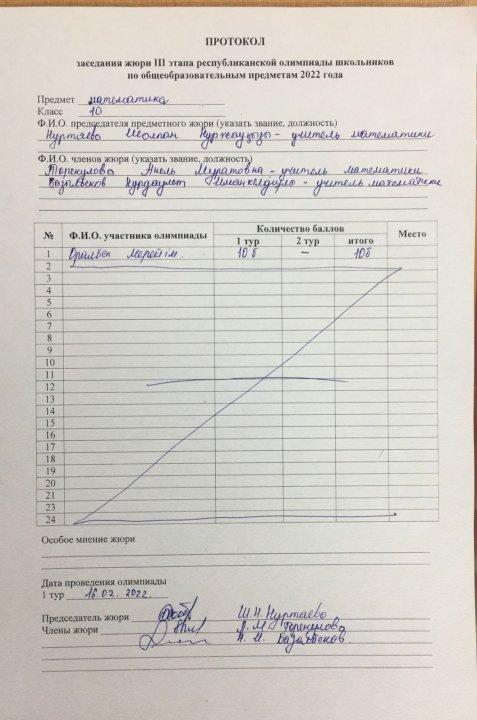 ПРОТОКОЛ
заседания жюри III этапа республиканской олимпиады школьников
по общеобразовательным предметам 2022 года
Предмет математика
Класс 10
Ф.И.О. председателя предметного жюри (указать звание, должность)
Нуртаева Шолпан - учитель математики
Ф.И.О. членов жюри (указать звание, должность)
Торекулова Анель Муратовна - учитель математики
Нурдаулет - учитель математики
№ Ф.И.О. участника олимпиады Количество баллов Место
1 тур 2 тур итого
1 Оралбек Мерейім. 10 б — 10б
2
3
4
5
6
7
8
9
10
11
12
13
14
15
16
17
18
19
20
21
22
23
24
Особое мнение жюри
Дата проведения олимпиады
1 тур 16.02.2022
Председатель жюри Ш.Н. Нуртаева
Члены жюри А.М. Торекулова